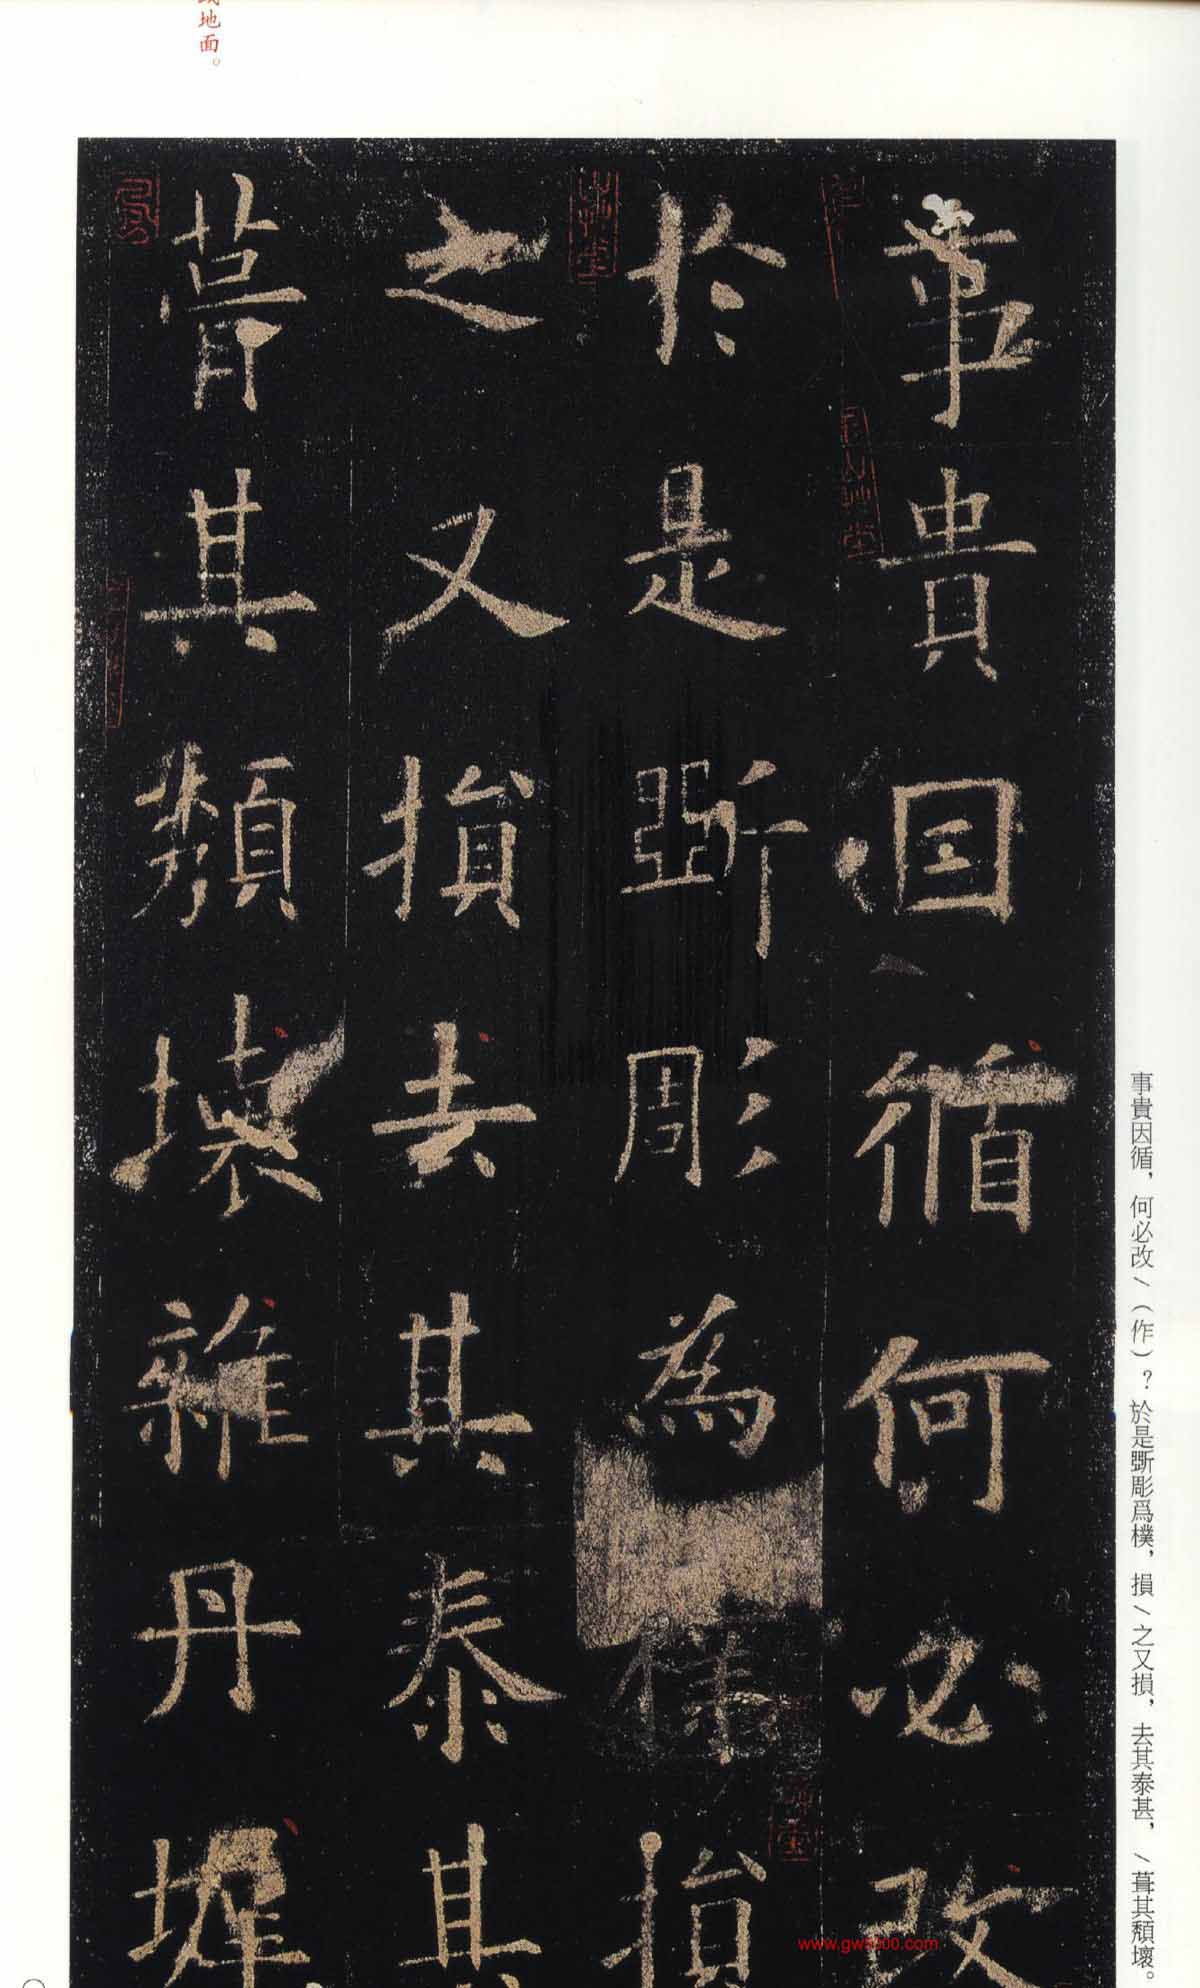 事貴因循，何必改\（作）？於是斲彫爲樸，損\之又損，去其泰甚，\葺其頹壞。
事貴因循何必改
於是斲彫為樸損
之又損去其泰甚
葺其頹壞雜丹墀
地面。